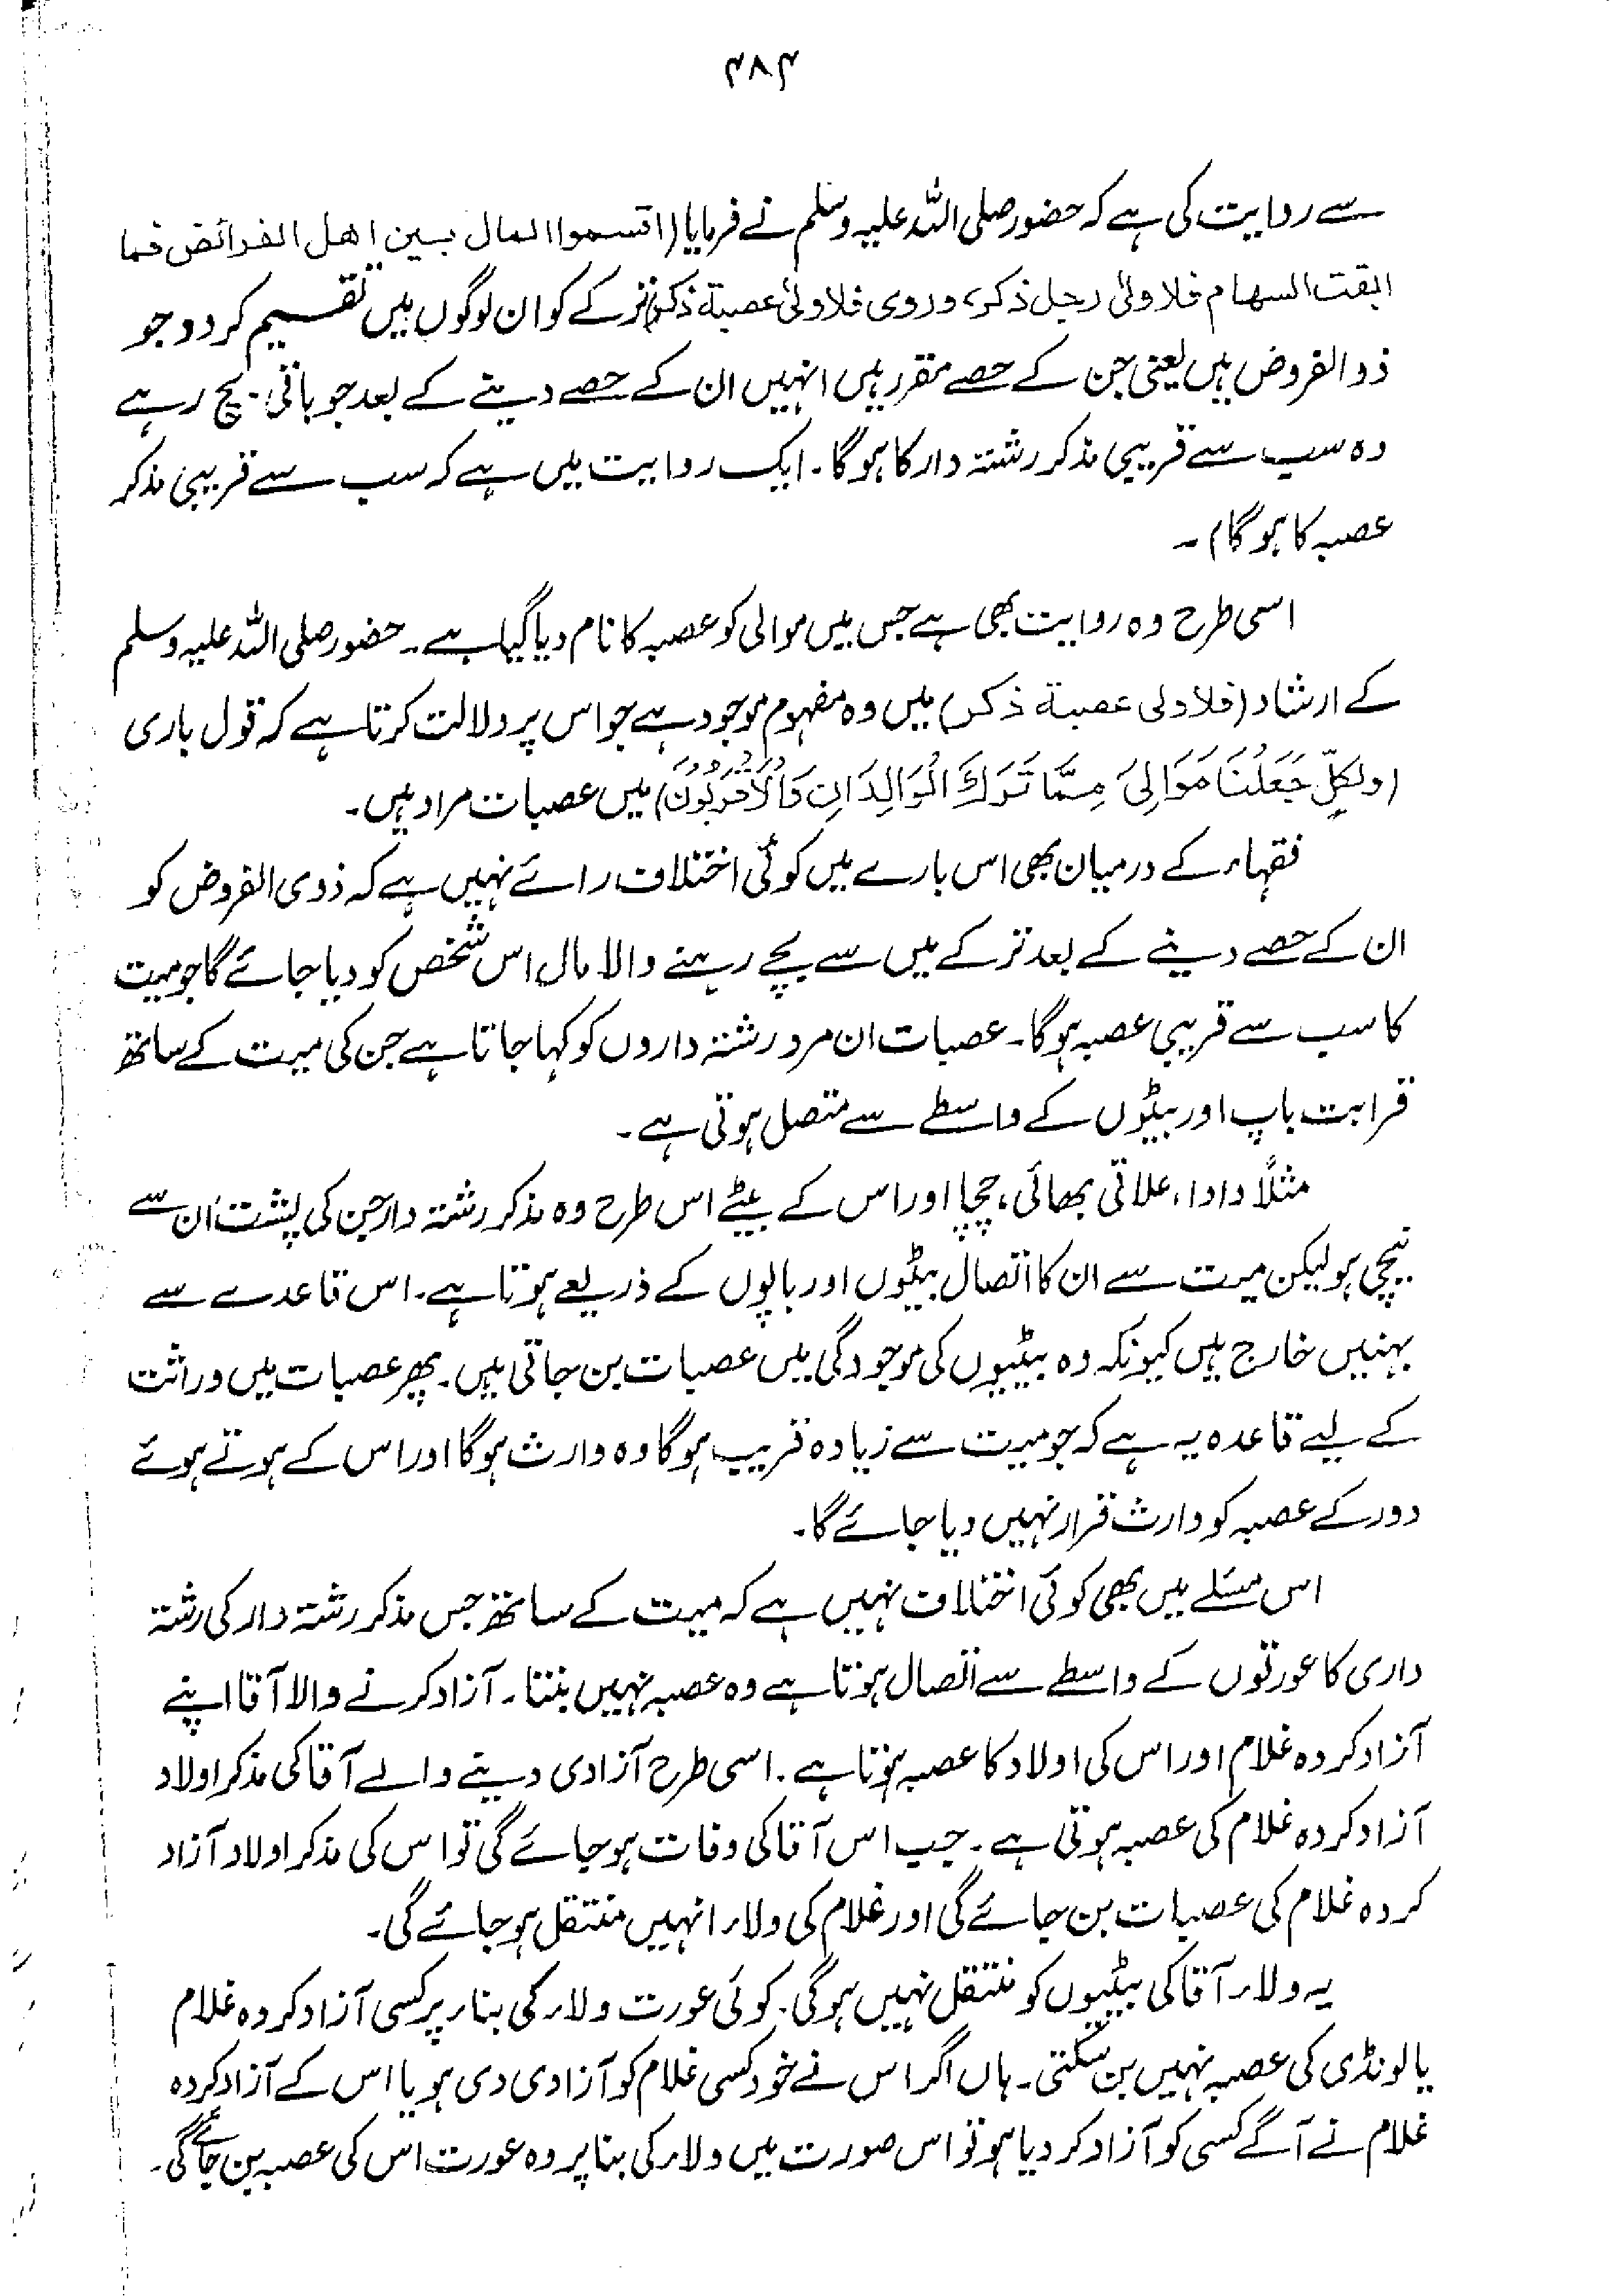 ۴۸۴
سے روایت کی ہے کہ حضور صلی اللہ علیہ وسلم نے فرمایا (اقسموا المال بین اهل الفرائض فما
ابقت السهام فلاولیٰ رجل ذکر، وروی فلاولیٰ عصبة ذکر) ترکے کو ان لوگوں میں تقسیم کر دو جو
ذوالفروض ہیں یعنی جن کے حصے مقرر ہیں انہیں ان کے حصے دینے کے بعد جو باقی بچ رہے
وہ سب سے قریبی مذکر رشتہ دار کا ہوگا۔ ایک روایت میں ہے کہ سب سے قریبی مذکر
عصبہ کا ہوگا)۔
اسی طرح وہ روایت بھی ہے جس میں موالی کو عصبہ کا نام دیا گیا ہے۔ حضور صلی اللہ علیہ وسلم
کے ارشاد (فلاولی عصبة ذکر) میں وہ مفہوم موجود ہے جو اس پر دلالت کرتا ہے کہ قول باری
(ولِکُلٍّ جَعَلْنَا مَوَالِیَ مِمَّا تَرَكَ الْوَالِدَانِ وَالْاَقْرَبُوْنَ) میں عصبات مراد ہیں۔
فقہاء کے درمیان بھی اس بارے میں کوئی اختلاف رائے نہیں ہے کہ ذوی الفروض کو
ان کے حصے دینے کے بعد ترکے میں سے بچے رہنے والا مال اس شخص کو دیا جائے گا جو میت
کا سب سے قریبی عصبہ ہوگا۔ عصبات ان مرد رشتہ داروں کو کہا جاتا ہے جن کی میت کے ساتھ
قرابت باپ اور بیٹوں کے واسطے سے متصل ہوتی ہے۔
مثلاً دادا، علاتی بھائی، چچا اور اس کے بیٹے اس طرح وہ مذکر رشتہ دار جن کی پشت ان سے
نیچی ہو لیکن میت سے ان کا اتصال بیٹوں اور باپوں کے ذریعے ہوتا ہے۔ اس قاعدے سے
بہنیں خارج ہیں کیونکہ وہ بیٹیوں کی موجودگی میں عصبات بن جاتی ہیں۔ پھر عصبات میں وراثت
کے لیے قاعدہ یہ ہے کہ جو میت سے زیادہ قریب ہوگا وہ وارث ہوگا اور اس کے ہوتے ہوئے
دور کے عصبہ کو وارث قرار نہیں دیا جائے گا۔
اس مسئلے میں بھی کوئی اختلاف نہیں ہے کہ میت کے ساتھ جس مذکر رشتہ دار کی رشتہ
داری کا عورتوں کے واسطے سے اتصال ہوتا ہے وہ عصبہ نہیں بنتا۔ آزاد کرنے والا آقا اپنے
آزاد کردہ غلام اور اس کی اولاد کا عصبہ ہوتا ہے۔ اسی طرح آزادی دینے والے آقا کی مذکر اولاد
آزاد کردہ غلام کی عصبہ ہوتی ہے۔ جب اس آقا کی وفات ہو جائے گی تو اس کی مذکر اولاد آزاد
کردہ غلام کی عصبات بن جائے گی اور غلام کی ولاء انہیں منتقل ہو جائے گی۔
یہ ولاء آقا کی بیٹیوں کو منتقل نہیں ہوگی۔ کوئی عورت ولاء کی بناء پر کسی آزاد کردہ غلام
یا لونڈی کی عصبہ نہیں بن سکتی۔ ہاں اگر اس نے خود کسی غلام کو آزادی دی ہو یا اس کے آزاد کردہ
غلام نے آگے کسی کو آزاد کر دیا ہو تو اس صورت میں ولاء کی بنا پر وہ عورت اس کی عصبہ بن جائے گی۔